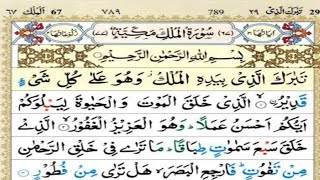 29 تَبٰرَكَ الَّذِىْ 789 ٧٨٩ 67 اَلْمُلْك ٦٧
سُوْرَةُ الْمُلْكِ مَكِّيَّةٌ (٦٧) (٧٧)
بِسْمِ اللّٰهِ الرَّحْمٰنِ الرَّحِيْمِ
تَبٰرَكَ الَّذِىْ بِيَدِهِ الْمُلْكُ ۫ وَهُوَ عَلٰى كُلِّ شَىْءٍ
قَدِيْرُ ۙ الَّذِىْ خَلَقَ الْمَوْتَ وَالْحَيٰوةَ لِيَبْلُوَكُمْ
اَيُّكُمْ اَحْسَنُ عَمَلًا ؕ وَهُوَ الْعَزِيْزُ الْغَفُوْرُ ۙ الَّذِىْ
خَلَقَ سَبْعَ سَمٰوٰتٍ طِبَاقًا ؕ مَا تَرٰى فِىْ خَلْقِ الرَّحْمٰنِ
مِنْ تَفٰوُتٍ ؕ فَارْجِعِ الْبَصَرَ ۙ هَلْ تَرٰى مِنْ فُطُوْرٍ